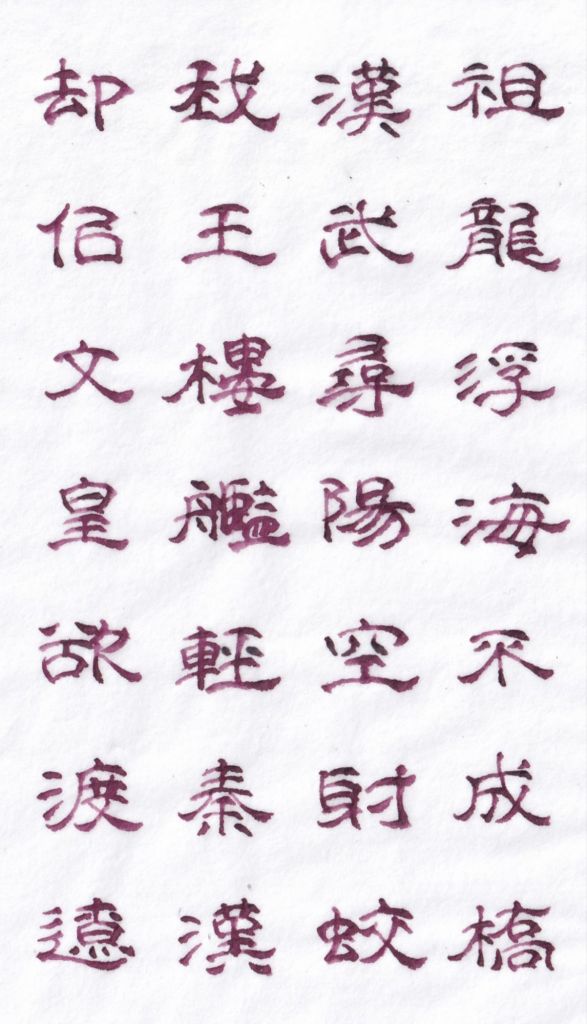 祖龍浮海不成橋
漢武尋陽空射蛟
我王樓艦輕秦漢
却佀文皇欲渡遼